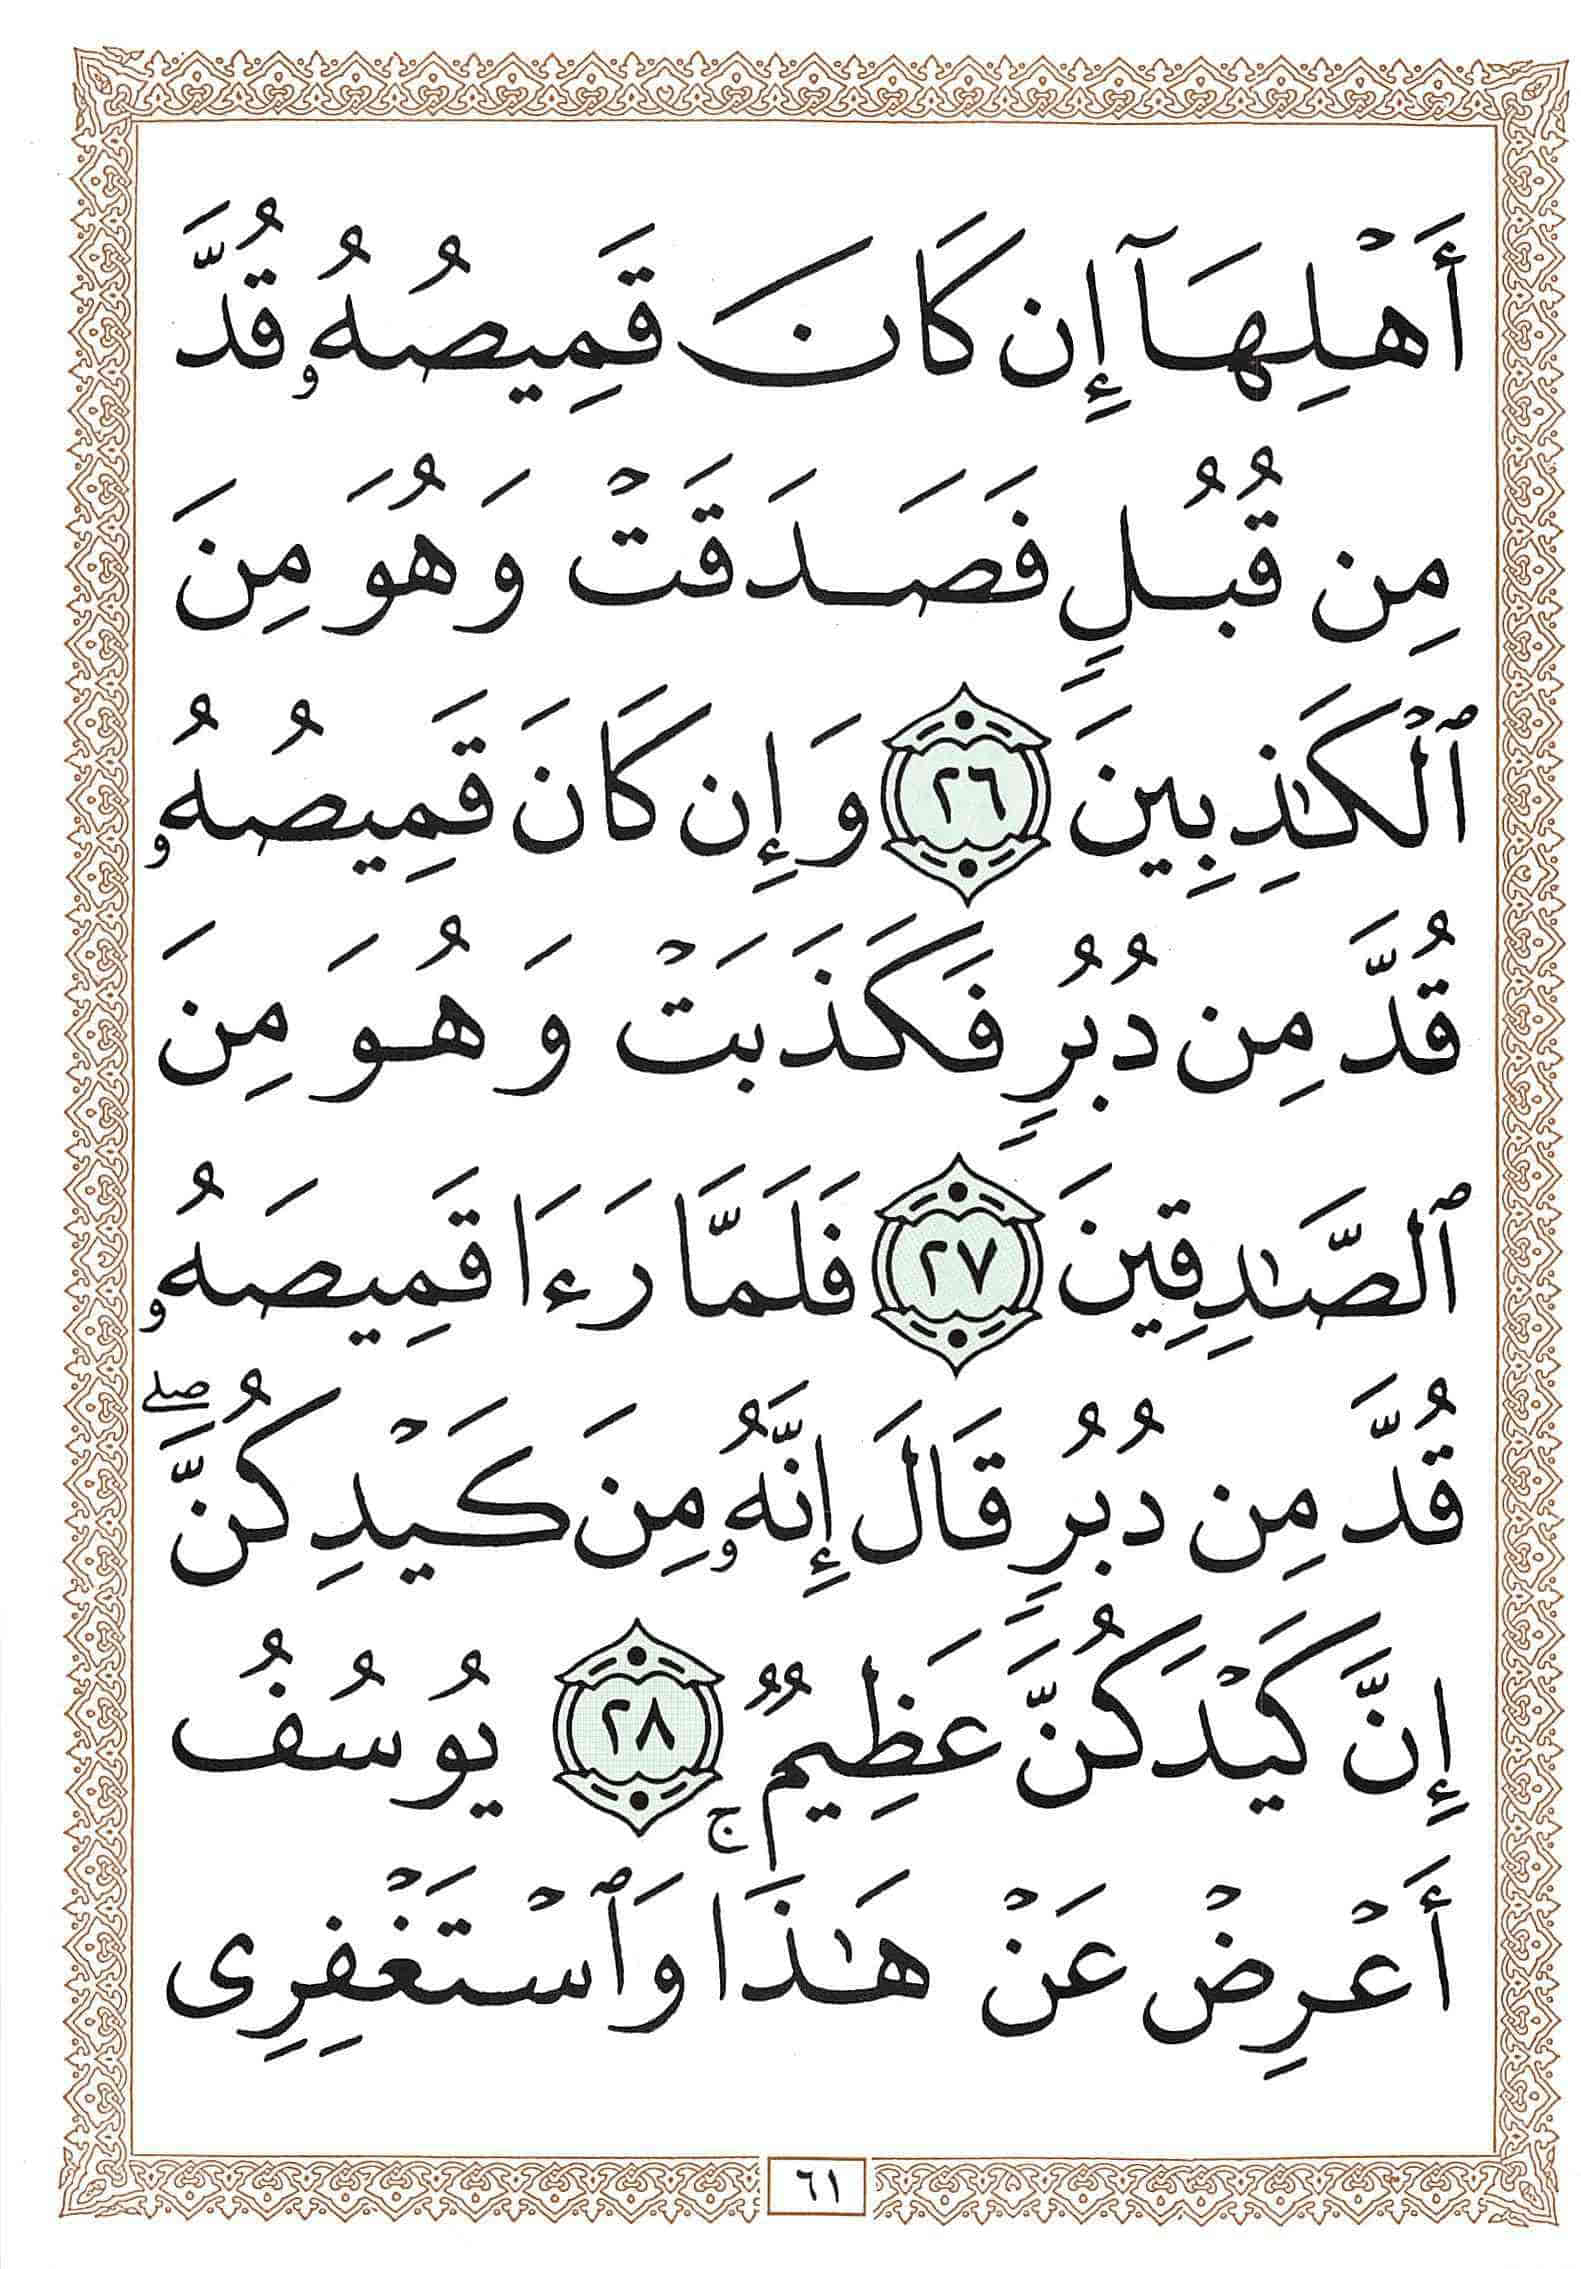 أَهْلِهَآ إِن كَانَ قَمِيصُهُۥ قُدَّ
مِن قُبُلٍ فَصَدَقَتْ وَهُوَ مِنَ
ٱلْكَـٰذِبِينَ ٢٦ وَإِن كَانَ قَمِيصُهُۥ
قُدَّ مِن دُبُرٍ فَكَذَبَتْ وَهُوَ مِنَ
ٱلصَّـٰدِقِينَ ٢٧ فَلَمَّا رَءَا قَمِيصَهُۥ
قُدَّ مِن دُبُرٍ قَالَ إِنَّهُۥ مِن كَيْدِكُنَّ ۖ
إِنَّ كَيْدَكُنَّ عَظِيمٌ ٢٨ يُوسُفُ
أَعْرِضْ عَنْ هَـٰذَا ۚ وَٱسْتَغْفِرِى
٦١